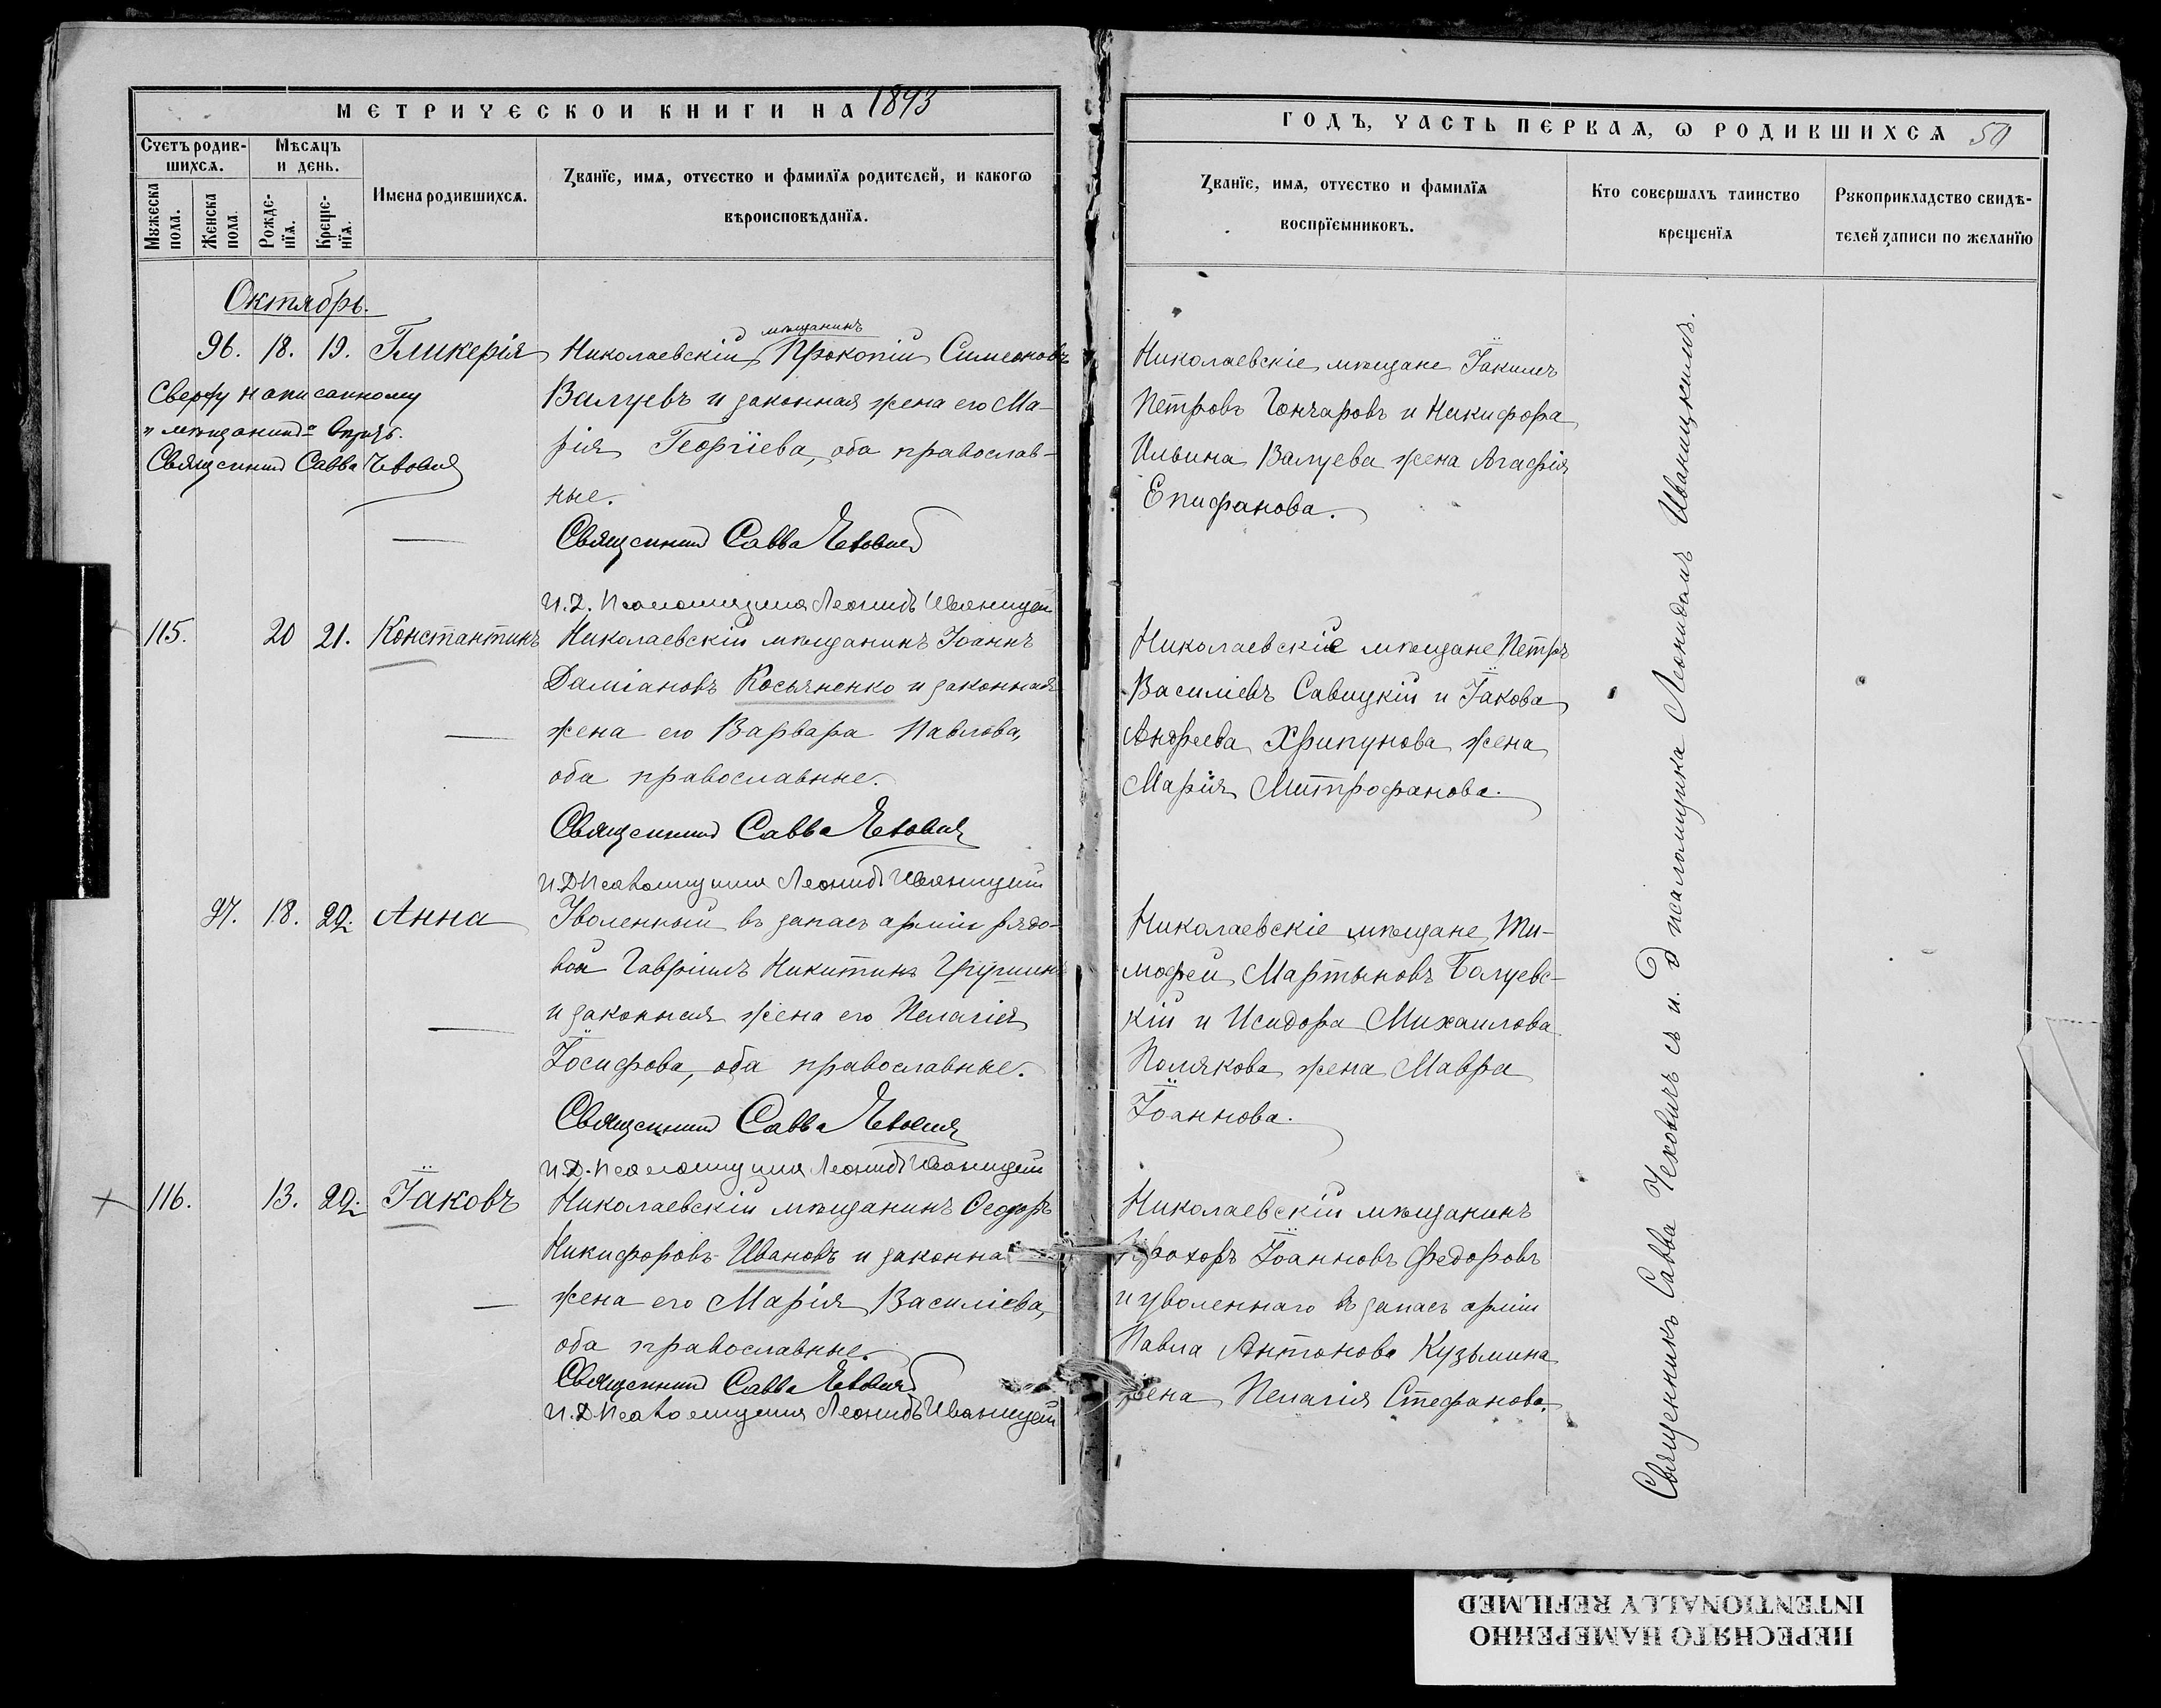 МЕТРИЧЕСКОЙ КНИГИ НА 1893
Счетъ родив-
шихся.
Мѣсяцъ
и день.
Мужеска
пола.
Женска
пола.
Рожде-
нїя.
Креще-
нїя.
Имена родившихся.
Званїе, имя, отчество и фамилїя родителей, и какогѡ
вѣроисповѣданїя.
Октябрь.
96. 18. 19. Гликерія Николаевскій мѣщанинъ Прокопій Симеоновъ
Валуевъ и законная жена его Ма-
рія Георгіева, оба православ-
ные.
Сверху написанному
„мѣщанинъ“
Священникъ Савва Чехович
Священникъ Савва Чехович
И.Д. Псаломщика Леонидъ Иваницкій
115. 20 21. Константинъ Николаевскій мѣщанинъ Іоаннъ
Даміановъ Косьяненко и законная
жена его Варвара Павлова,
оба православные.
Священникъ Савва Чехович
И.Д Псаломщика Леонидъ Иваницкій
97. 18. 22. Анна Уволенный въ запасъ арміи рядо-
вой Гавріилъ Никитинъ
и законная жена его Пелагія
Іосифова, оба православные.
Священникъ Савва Чехович
И.Д. Псаломщика Леонидъ Иваницкій
116. 13. 22. Іаковъ Николаевскій мѣщанинъ Ѳеодоръ
Никифоровъ Ивановъ и законная
жена его Марія Василіева,
оба православные.
Священникъ Савва Чехович
И.Д Псаломщика Леонидъ Иваницкій
ГОДЪ, ЧАСТЬ ПЕРВАЯ, Ѡ РОДИВШИХСЯ 50
Званїе, имя, отчество и фамилїя
воспрїемниковъ.
Кто совершалъ таинство
крещенїя
Рукоприкладство свидѣ-
телей записи по желанїю
Николаевскіе мѣщане Іакимъ
Петровъ Гончаровъ и Никифора
Ильина Валуева жена Агафія
Епифанова.
Николаевскіе мѣщане Петръ
Василіевъ Савицкій и Іакова
Андреева Хрипунова жена
Марія Митрофанова.
Николаевскіе мѣщане Ти-
мофей Мартыновъ Балуевс-
кій и Исидора Михаилова
Полякова жена Мавра
Іоаннова.
Николаевскій мѣщанинъ
Прохоръ Іоанновъ Федоровъ
и уволеннаго въ запасъ арміи
Павла Антонова Кузьмина
жена Пелагія Стефанова.
Священникъ Савва Чеховичъ съ и. д псаломщика Леонидомъ Иваницкимъ.
ПЕРЕСНЯТО НАМЕРЕННО
INTENTIONALLY REFILMED